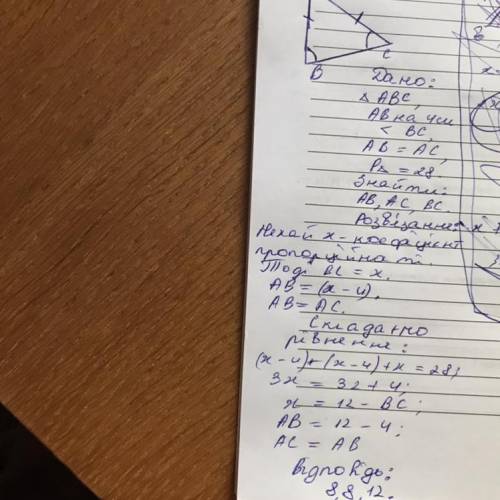 B
C
Дано:
△ ABC,
AB на 4 см
< BC,
AB = AC,
P△ = 28
Знайти:
AB, AC, BC
Розвязання
Нехай x - коефіцієнт
пропорційності.
Тоді BC = x.
AB = (x - 4),
AB = AC.
Складемо
рівняння:
(x - 4) + (x - 4) + x = 28;
3x = 32 + 4;
x = 12 - BC;
AB = 12 - 4;
AC = AB
Відповідь:
8, 8, 12.